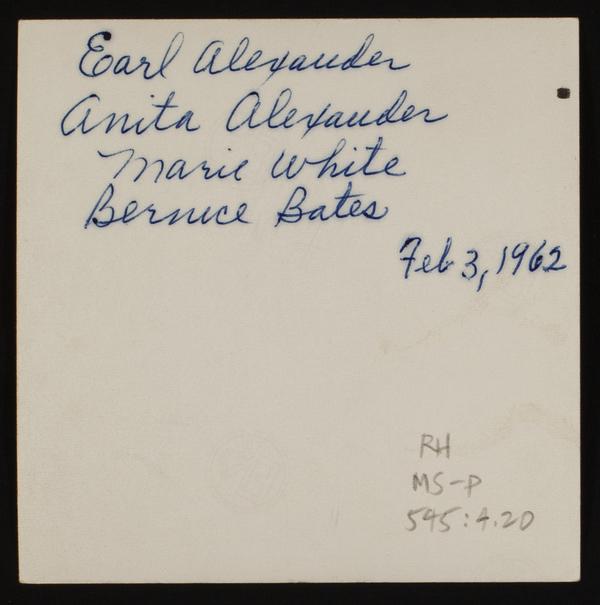 Earl Alexander
Anita Alexander
Marie White
Bernice Bates
Feb 3, 1962
RH
MS-P
545:4.20